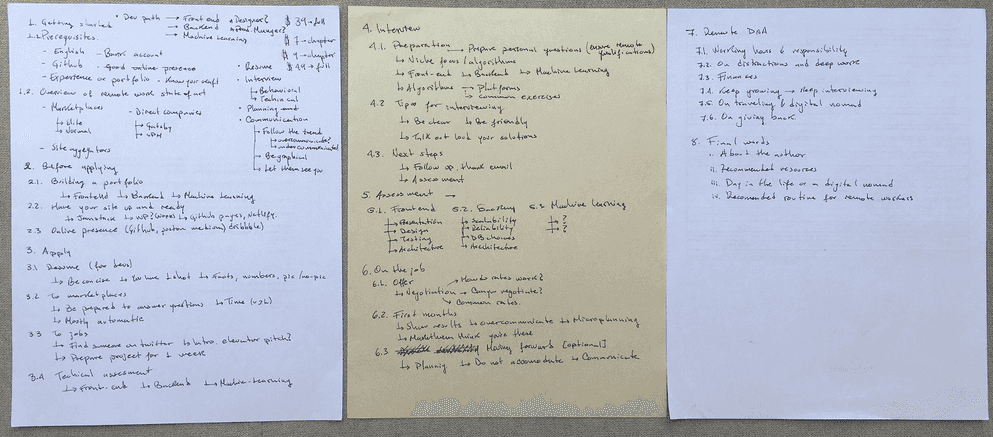 1. Getting started
• Dev path → Front end
→ Backend
→ Machine Learning
$ 39 → full
$ 7 → chapter
$ 9 → chapter
$ 49 → full
1.1. Prerequisites
- English - Bank account
- Github - Good online presence
- Experience or portfolio - Know your craft
1.2. Overview of remote work state of art
- Marketplaces
↳ Elite
↳ Normal
- Direct companies
↳ Gatsby
- Site aggregators
• Resume
• Interview
↳ Behavioral
↳ Technical
• Planning and
• Communication
↳ Follow the trend
↳ overcommunicate
↳ undercommunicate
↳ Be graphical
↳ Let them see you
2. Before applying
2.1. Building a portfolio
↳ Frontend ↳ Backend ↳ Machine Learning
2.2. Have your site up and ready
↳ Jamstack ↳ WP? ↳ Github pages, Netlify.
2.3 Online presence (Github, medium) dribbble)
3. Apply
3.1 Resume
↳ Be concise ↳ You have 1 shot ↳ Facts, numbers, pic / no-pic
3.2 To marketplaces
↳ Be prepared to answer questions ↳ Time
↳ Mostly automatic
3.3 To jobs
↳ Find someone on twitter ↳ Intro. elevator pitch?
↳ Prepare project for 1 week
3.4 Techical assesment
↳ Front-end ↳ Backend ↳ Machine-Learning
4. Interview
4.1. Preparation → Prepare personal questions (ensure remote qualifications)
↳ Niche focus / algorithms
↳ Front-end ↳ Backend ↳ Machine Learning
↳ Algorithms → Platforms
↳ Common exercises
4.2 Tips for interviewing
↳ Be clear ↳ Be friendly
↳ Talk out loud your solutions
4.3. Next steps
↳ Follow up, thank email
↳ Assessment
5. Assessment →
5.1. Frontend
↳ Presentation
↳ Design
↳ Testing
↳ Architecture
5.2. Backend
↳ Scalability
↳ Reliability
↳ DB choices
↳ Architecture
5.3 Machine Learning
↳ ?
↳ ?
6. On the job
6.1. Offer → How do rates work?
↳ Negotiation → Can you negotiate?
↳ Common rates.
6.2. First months
↳ Show results ↳ overcommunicate ↳ Microplanning
↳ Make them think you're there
6.3 Moving forward [optional]
↳ Planning ↳ Do not accomodate ↳ Communicate
7. Remote D&A
7.1. Working hours & responsibility
7.2. On distractions and deep work
7.3. Finances
7.4. Keep growing → Keep interviewing
7.5. On traveling & digital nomad
7.6. On giving back
8. Final words
i. About the author
ii. Recommended resources
iii. Day in the life of a digital nomad
iv. Recomended routine for remote workers